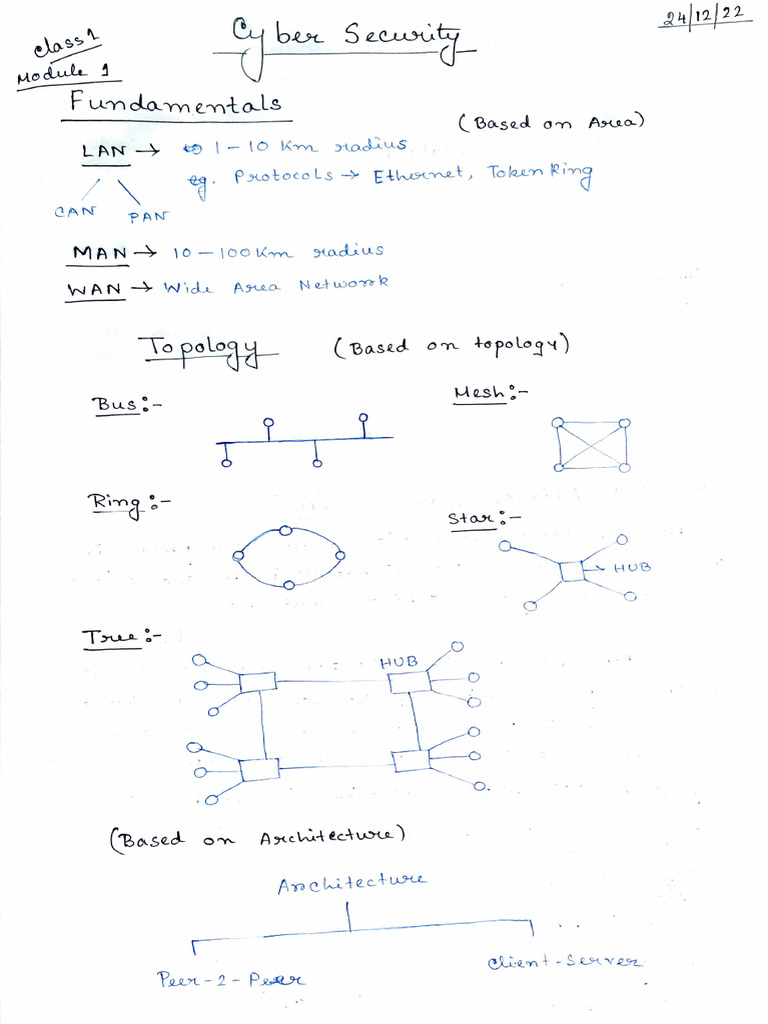 24/12/22
Class 1
Module 1
Cyber Security
Fundamentals
(Based on Area)
LAN → 1-10 Km radius
eg. Protocols → Ethernet, Token Ring
CAN PAN
MAN → 10-100 Km radius
WAN → Wide Area Network
Topology (Based on topology)
Bus:- Mesh:-
Ring:- Star:-
HUB
Tree:-
HUB
(Based on Architecture)
Architecture
Peer-2-Peer Client-Server